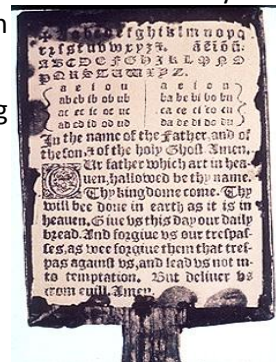 a b c d e f g h i k l m n o p q
r ꝛ ſ s t u v w x y z &. ã ẽ ĩ õ ũ.
A B C D E F G H I K L M N O
P Q R S T U W X Y Z.
a e i o u a e i o u
ab eb ib ob ub ba be bi bo bu
ac ec ic oc uc ca ce ci co cu
ad ed id od ud da de di do du
In the name of the Father, and of
the ſon, & of the holy Ghoſt Amen.
Our father which art in hea-
uen, hallowed be thy name.
Thy kingdome come. Thy
will bee done in earth as it is in
heauen. Giue vs this day our daily
bread. And forgiue vs our treſpaſ-
ſes, as wee forgiue them that treſ-
pas againſt vs, and lead vs not in-
to temptation. But deliuer vs
from euill. Amen.